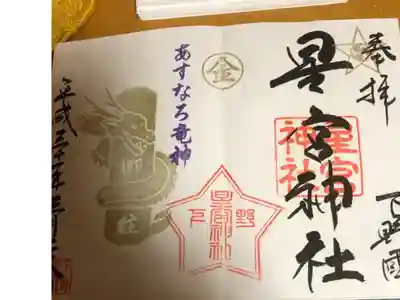 奉拝
下野國
星宮神社
星宮神社
金
あすなろ竜神
星宮神社
下野
柱
平成三十年